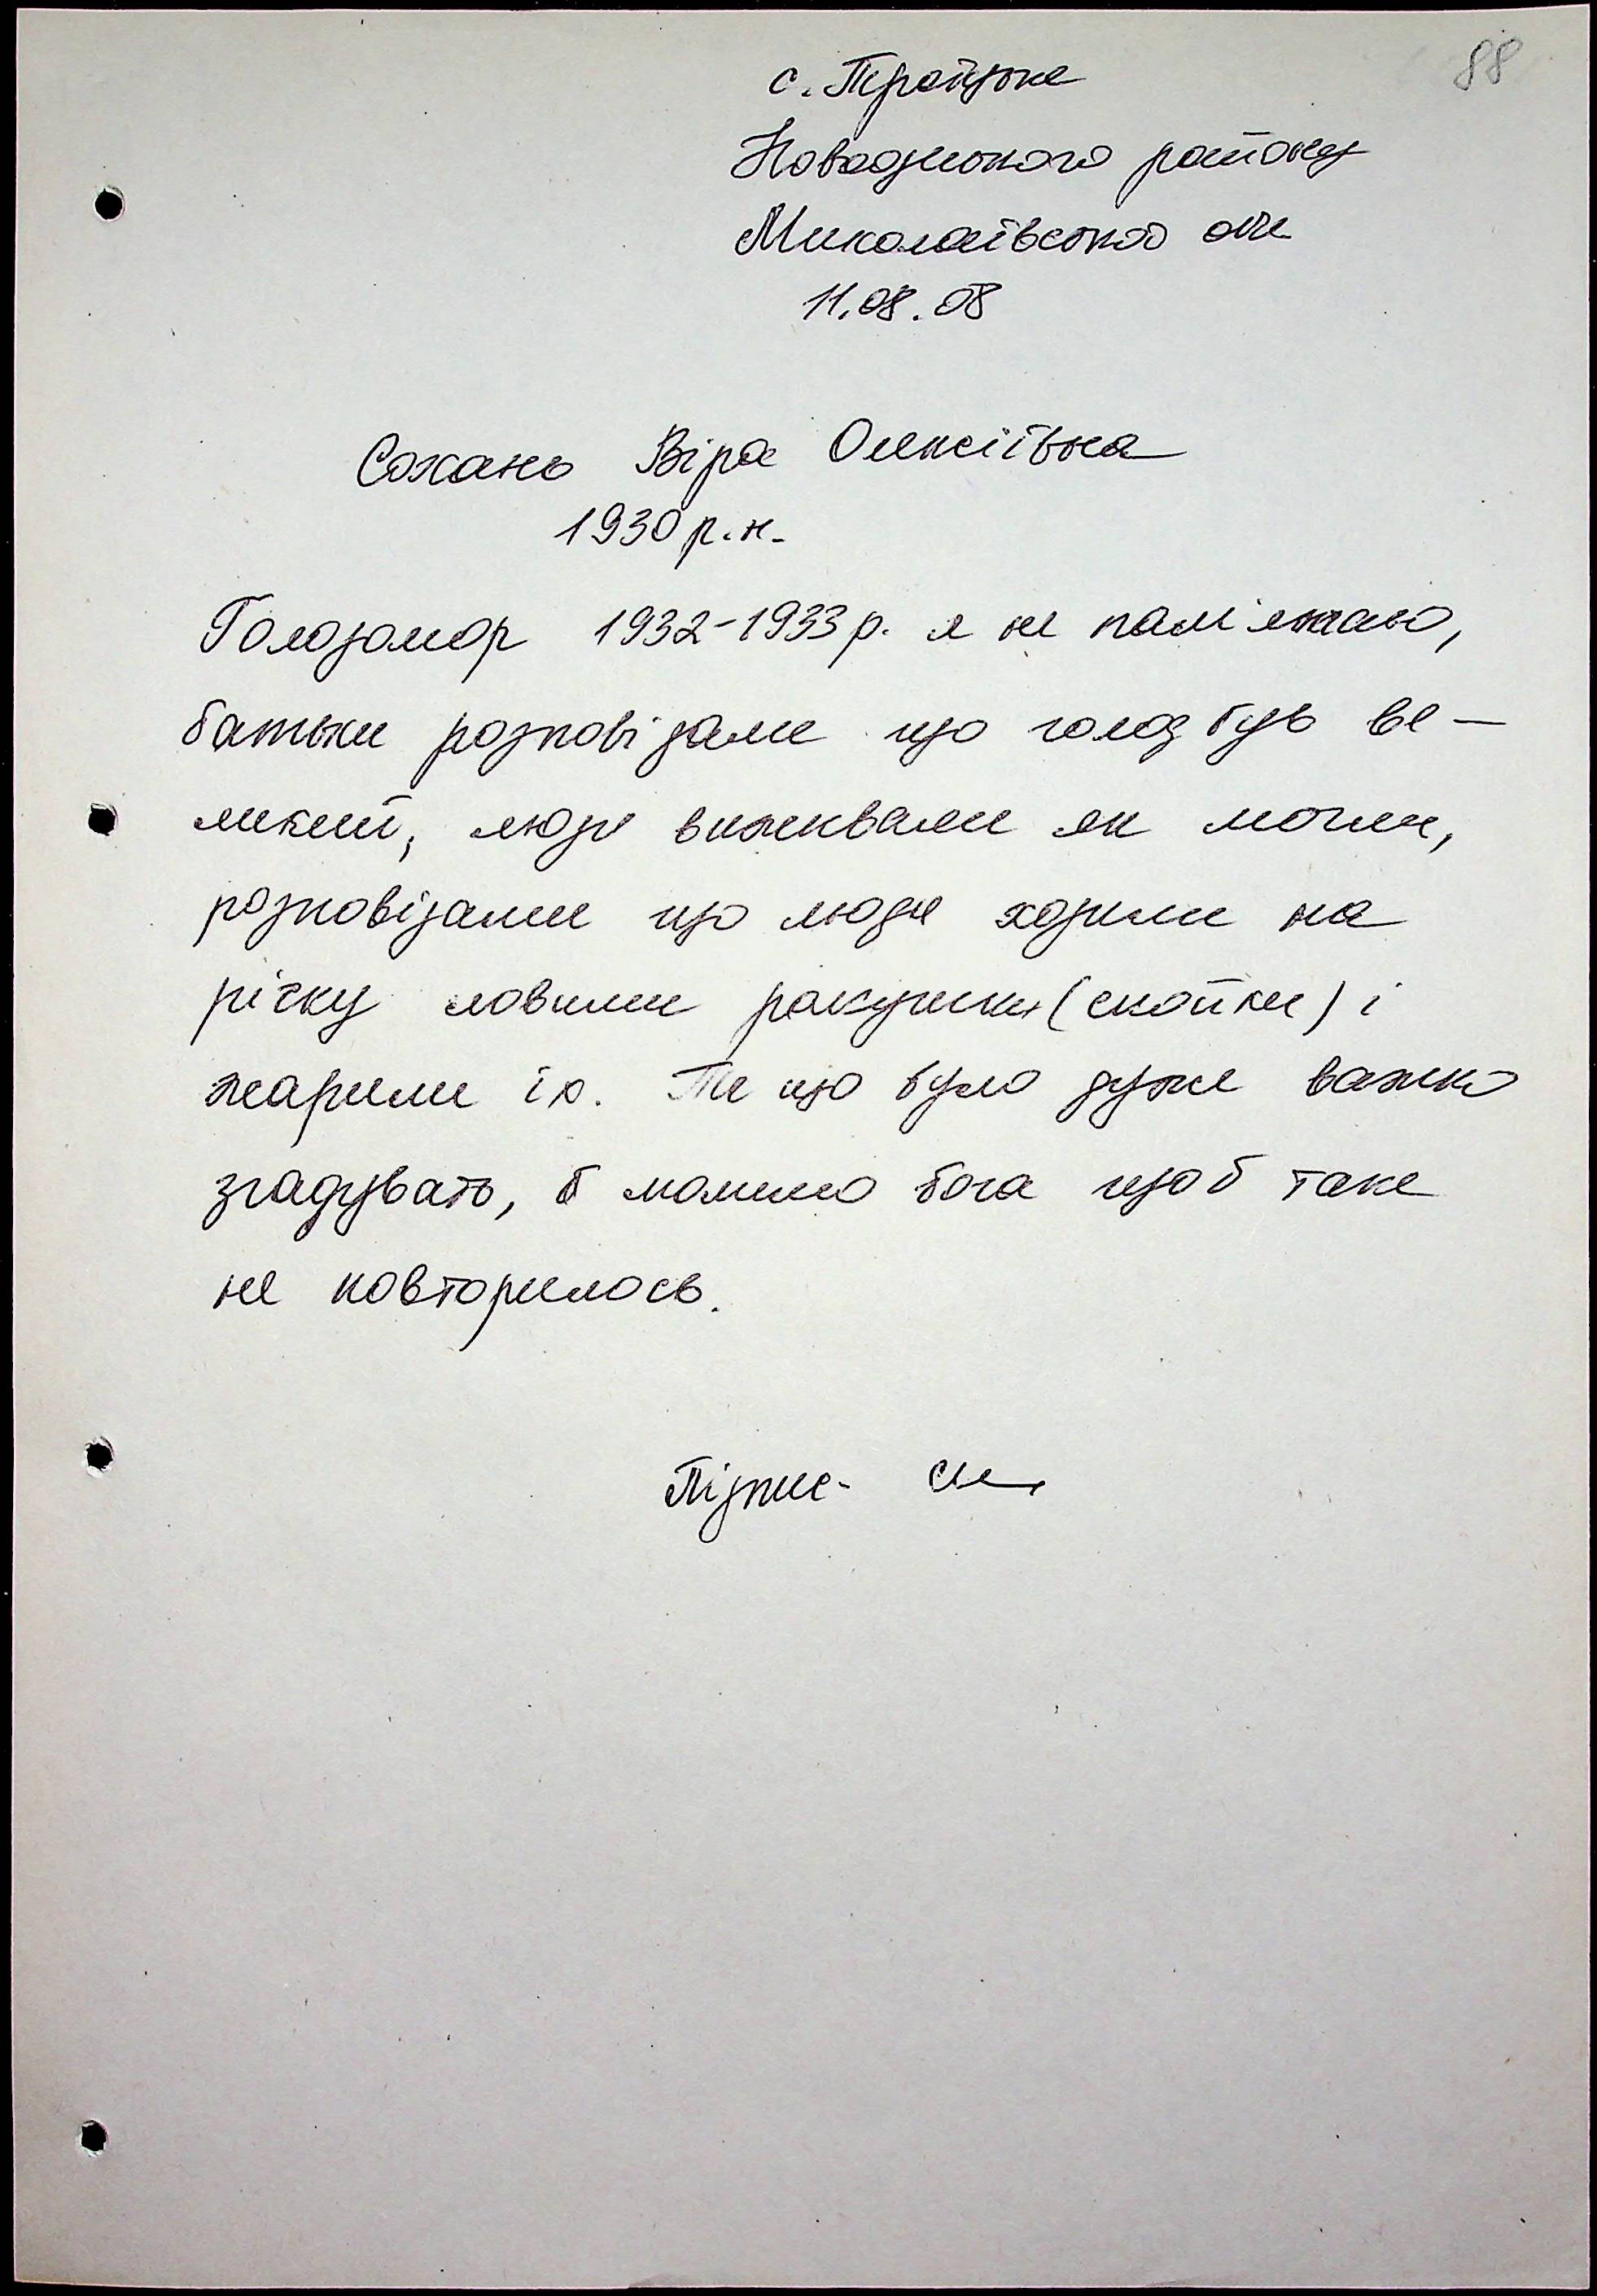 88
с. Троїцьке
Новоодеського району
Миколаївської обл
11.08.08
Сохань Віра Олексіївна
1930 р.н.
Голодомор 1932-1933 р. я не пам'ятаю,
батьки розповідали що голод був ве-
ликий, люди виживали як могли,
розповідали що люди ходили на
річку ловили ракушки (скойки) і
жарили їх. Те що було дуже важко
згадувать, б молимо бога щоб таке
не повторилось.
Підпис-